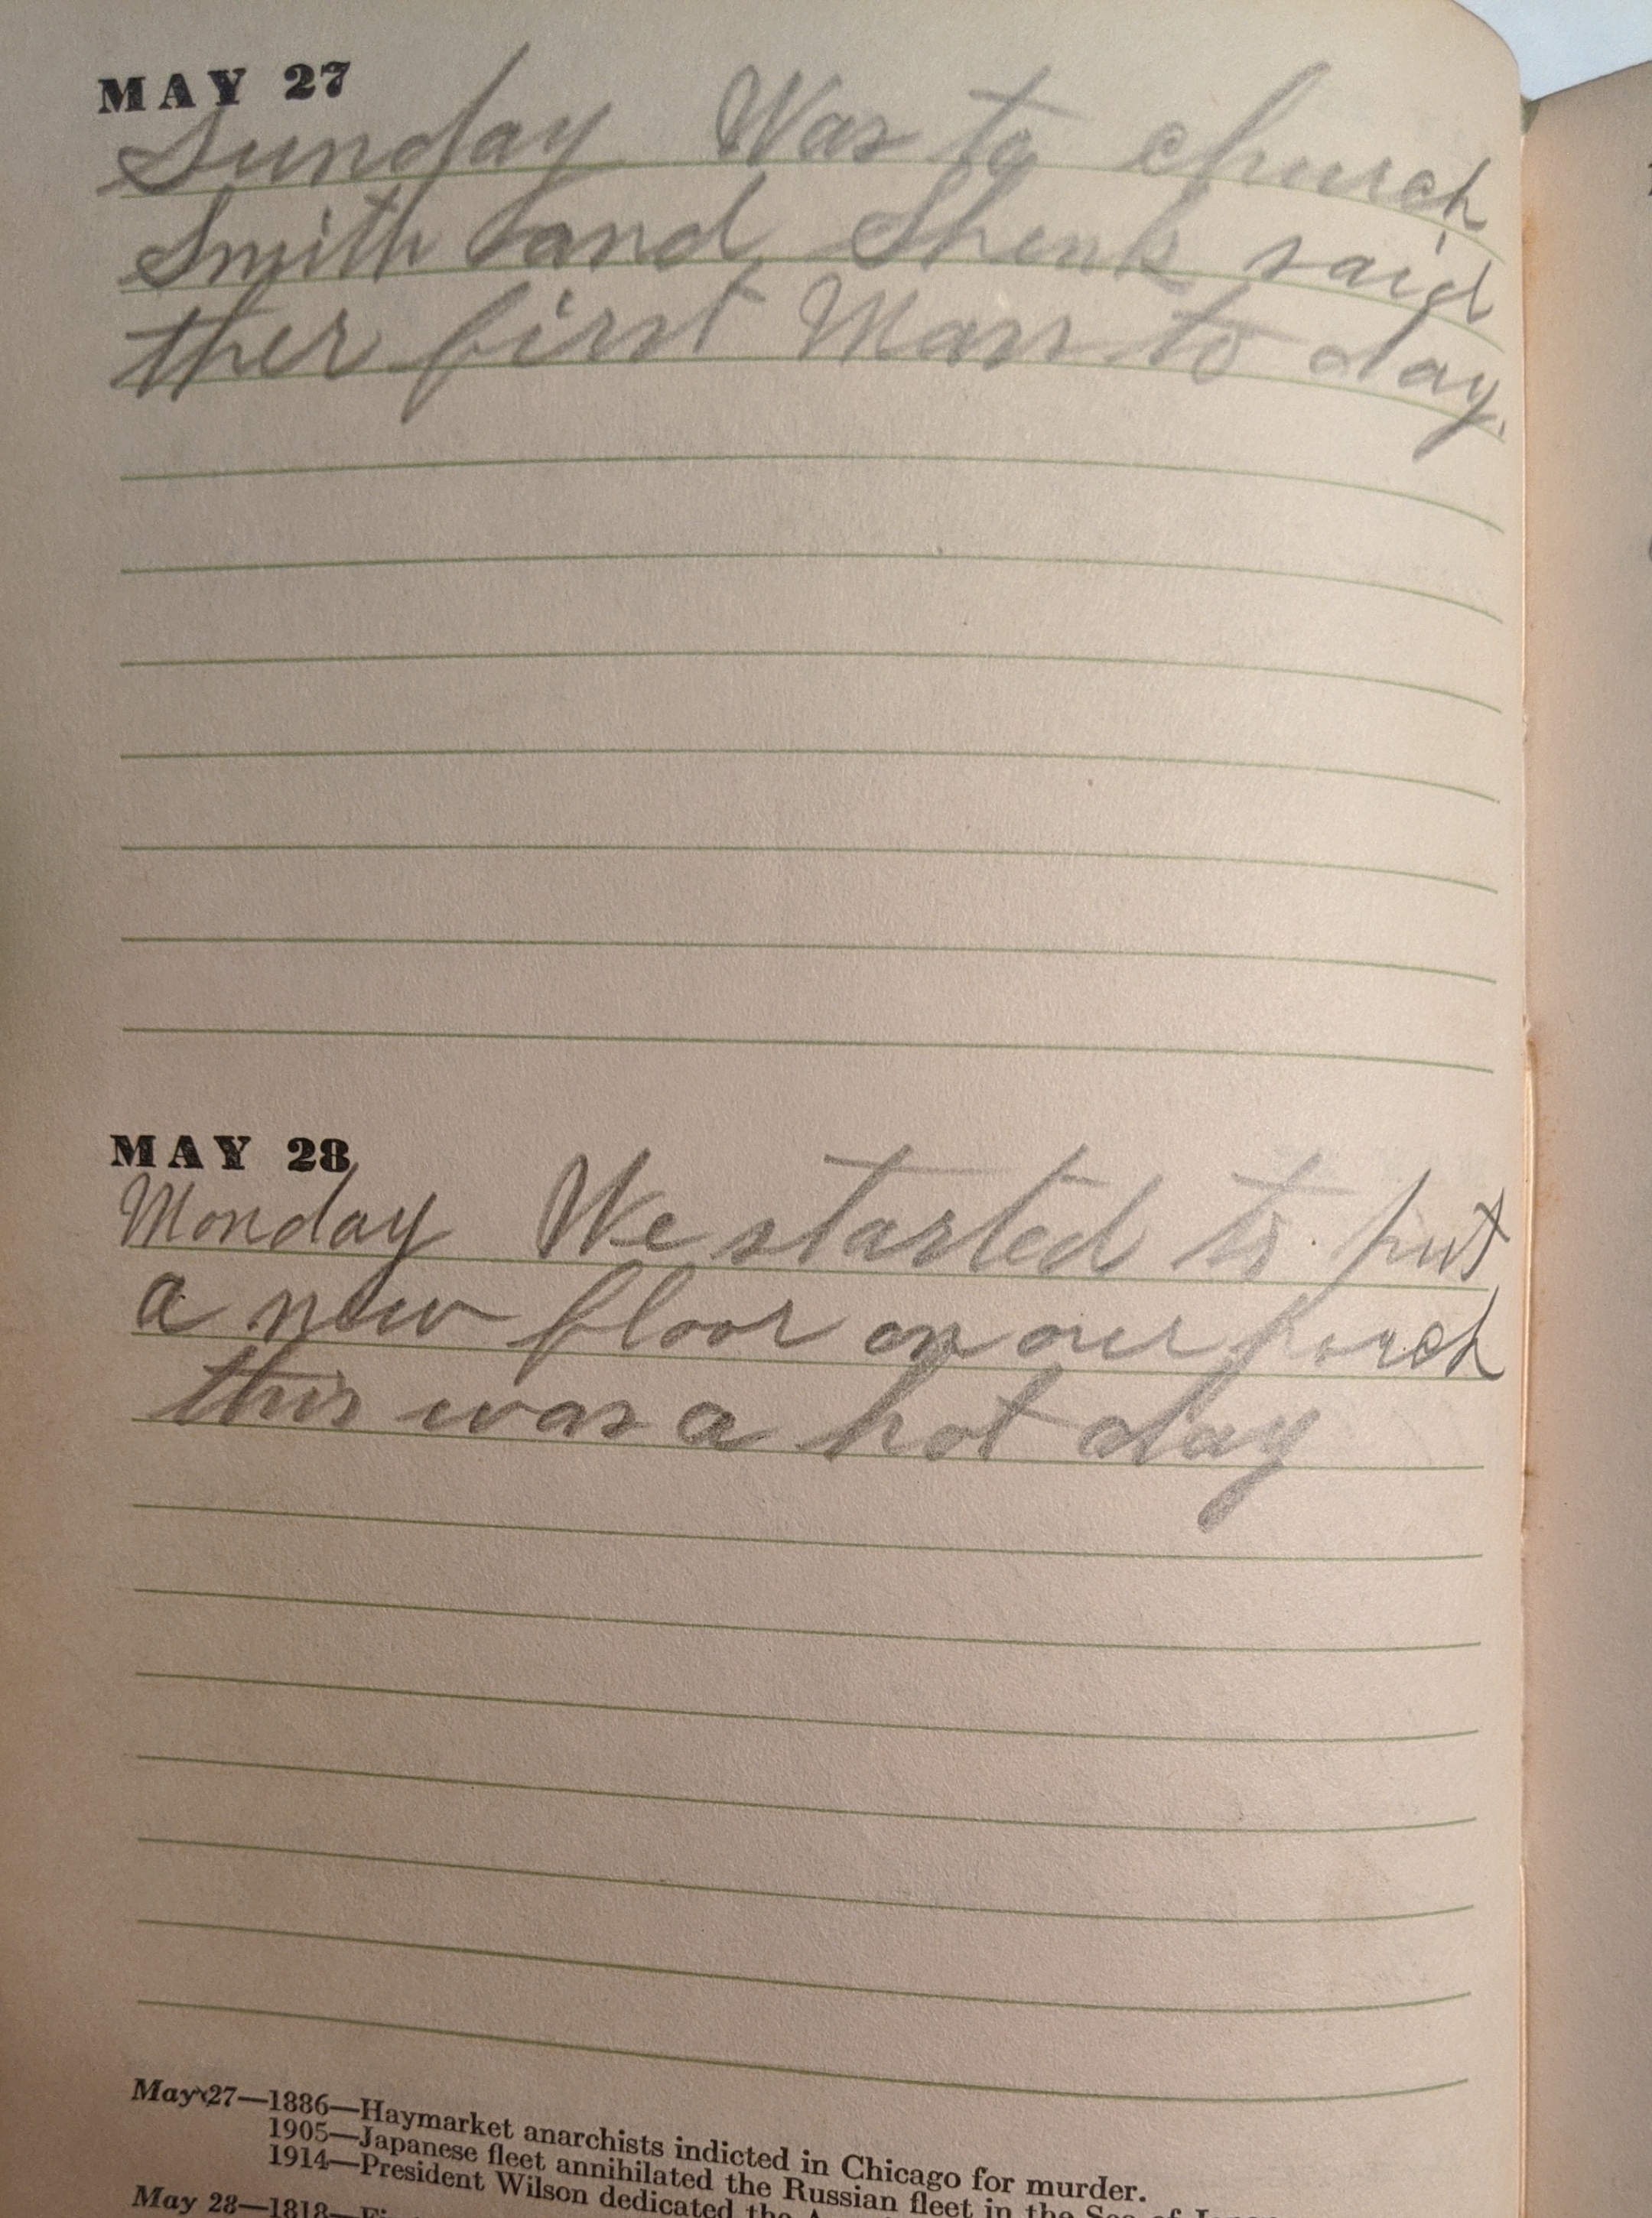 MAY 27
Sunday Was to church
Smith and Shenk said
ther first Mass to day.
MAY 28
Monday We started to put
a new floor on our porch
this was a hot day
May 27—1886—Haymarket anarchists indicted in Chicago for murder.
1905—Japanese fleet annihilated the Russian fleet in the Sea of
1914—President Wilson dedicated the
May 28—1818—